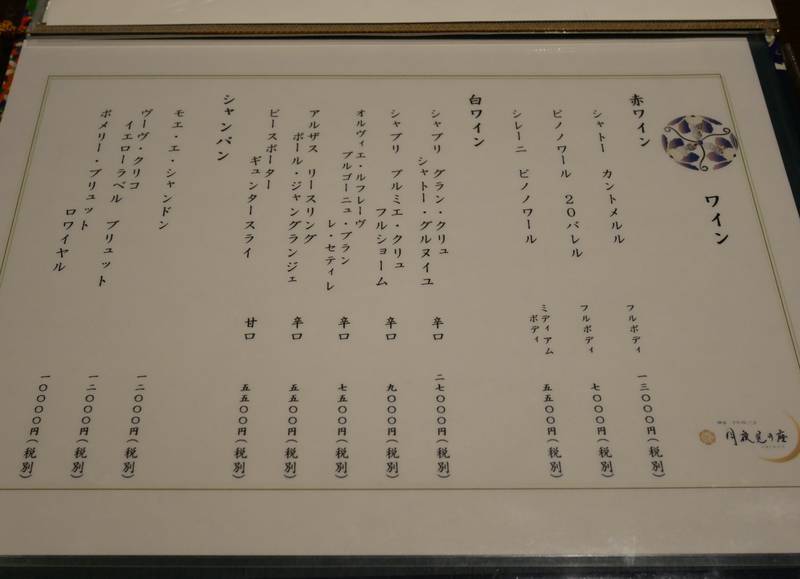 ワイン
赤ワイン
シャトー カントメルル フルボディ 一三〇〇〇円(税別)
ピノノワール 20バレル フルボディ 七〇〇〇円(税別)
シレーニ ピノノワール ミディアムボディ 五五〇〇円(税別)
白ワイン
シャブリ グラン・クリュ
シャトー・グルヌイユ 辛口 二七〇〇〇円(税別)
シャブリ プルミエ・クリュ
フルショーム 辛口 九〇〇〇円(税別)
オルヴィエ・ルフレーヴ
ブルゴーニュ・ブラン
レ・セティレ 辛口 七五〇〇円(税別)
アルザス リースリング
ポール・ジャングランジェ 辛口 五五〇〇円(税別)
ピースポーター
ギュンタースライ 甘口 五五〇〇円(税別)
シャンパン
モエ・エ・シャンドン 一二〇〇〇円(税別)
ヴーヴ・クリコ
イエローラベル ブリュット 一二〇〇〇円(税別)
ポメリー・ブリュット
ロワイヤル 一〇〇〇〇円(税別)
月夜見の座